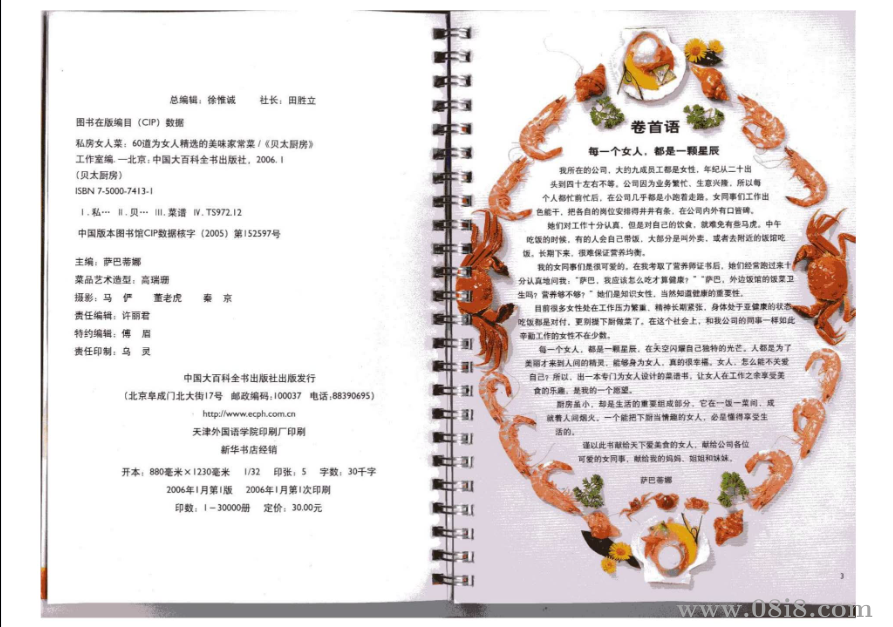 总编辑：徐惟诚 社长：田胜立
图书在版编目（CIP）数据
私房女人菜：60道为女人精选的美味家常菜/《贝太厨房》
工作室编.—北京：中国大百科全书出版社，2006.1
（贝太厨房）
ISBN 7-5000-7413-1
Ⅰ.私… Ⅱ.贝… Ⅲ.菜谱 Ⅳ.TS972.12
中国版本图书馆CIP数据核字（2005）第152597号
主编：萨巴蒂娜
菜品艺术造型：高瑞珊
摄影：马 俨 董老虎 秦 京
责任编辑：许丽君
特约编辑：傅 眉
责任印制：乌 灵
中国大百科全书出版社出版发行
（北京阜成门北大街17号 邮政编码：100037 电话：88390695）
http://www.ecph.com.cn
天津外国语学院印刷厂印刷
新华书店经销
开本：880毫米×1230毫米 1/32 印张：5 字数：30千字
2006年1月第1版 2006年1月第1次印刷
印数：1－30000册 定价：30.00元
卷首语
每一个女人，都是一颗星辰
我所在的公司，大约九成员工都是女性，年纪从二十出
头到四十左右不等。公司因为业务繁忙，生意兴隆，所以每
个人都忙前忙后，在公司几乎都是小跑着走路。女同事们工作出
色能干，把各自的岗位安排得井井有条，在公司内外有口皆碑。
她们对工作十分认真，但是对自己的饮食，就难免有些马虎。中午
吃饭的时候，有的人会自己带饭，大部分是叫外卖，或者去附近的饭馆吃
饭，长期下来，很难保证营养均衡。
我的女同事们是很可爱的。在我考取了营养师证书后，她们经常跑过来十
分认真地问我：“萨巴，我应该怎么吃才算健康？”“萨巴，外边饭馆的饭菜卫
生吗？营养够不够？”她们是知识女性，当然知道健康的重要性。
目前很多女性处在工作压力繁重，精神长期紧张，身体处于亚健康的状态，
吃饭都是对付，更别提下厨做菜了。在这个社会上，和我公司的同事一样如此
辛勤工作的女性不在少数。
每一个女人，都是一颗星辰，在天空闪耀自己独特的光芒。人都是为了
美丽才来到人间的精灵，能够身为女人，真的很幸福。女人，怎么能不关爱
自己？所以，出一本专门为女人设计的菜谱书，让女人在工作之余享受美
食的乐趣，是我的一个愿望。
厨房虽小，却是生活的重要组成部分，它在一饭一菜间，成
就着人间烟火。一个能把下厨当情趣的女人，必是懂得享受生
活的。
谨以此书献给天下爱美食的女人，献给公司各位
可爱的女同事，献给我的妈妈、姐姐和妹妹。
萨巴蒂娜
3
www.08i8.com